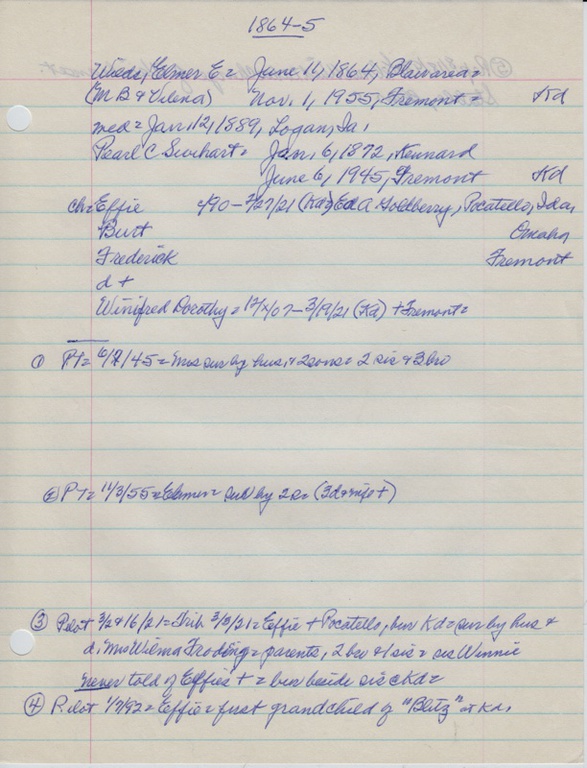 1864-5
Elmer E = June 11, 1864, Blair area =
(M B & Vilena) Nov. 1, 1955, Fremont = Kd
med = Jan. 12, 1889, Logan, Ia.
Pearl C = Jan. 6, 1872, Kennard
June 6, 1945, Fremont Kd
ch = Effie 4/90 - 2/27/21 (Kd) Ed A Goldberry, Pocatello, Ida,
Burt Omaha
Frederick Fremont
d +
Winifred Dorothy = - 3/19/21 (Kd) + Fremont =
① PT = 6/7/45 = Mrs sur by hus, & 2 sons = 2 sis & 3 bro
② PT = 11/3/55 = Elmer = sur by 2 s = (3 d & wife +)
③ Pilot 3/2 & 16/21 = Trib 3/3/21 = Effie + Pocatello, bur Kd = sur by hus &
d, Mrs Wilma = parents, 2 bro & 1 sis = sis Winnie
never told of Effie's + = bur beside sis c Kd =
④ Pilot = Effie = first grandchild of "Blitz" at Kd.